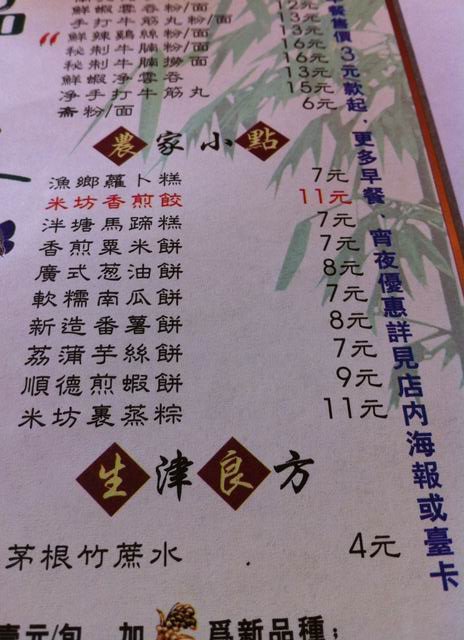 手打牛筋丸粉/面
鮮辣鷄絲粉/面
秘制牛腩粉/面
秘制牛腩撈面
鮮蝦净雲吞 13元
净手打牛筋丸 15元
斋粉/面 6元
農家小點
漁鄉蘿卜糕 7元
米坊香煎餃 11元
泮塘馬蹄糕 7元
香煎粟米餅 7元
廣式葱油餅 8元
軟糯南瓜餅 7元
新造番薯餅 8元
荔蒲芋絲餅 7元
順德煎蝦餅 9元
米坊裹蒸粽 11元
生津良方
茅根竹蔗水 4元
早餐售價3元款起,更多早餐、宵夜優惠詳見店内海報或臺卡
壹元/包 加 爲新品種;